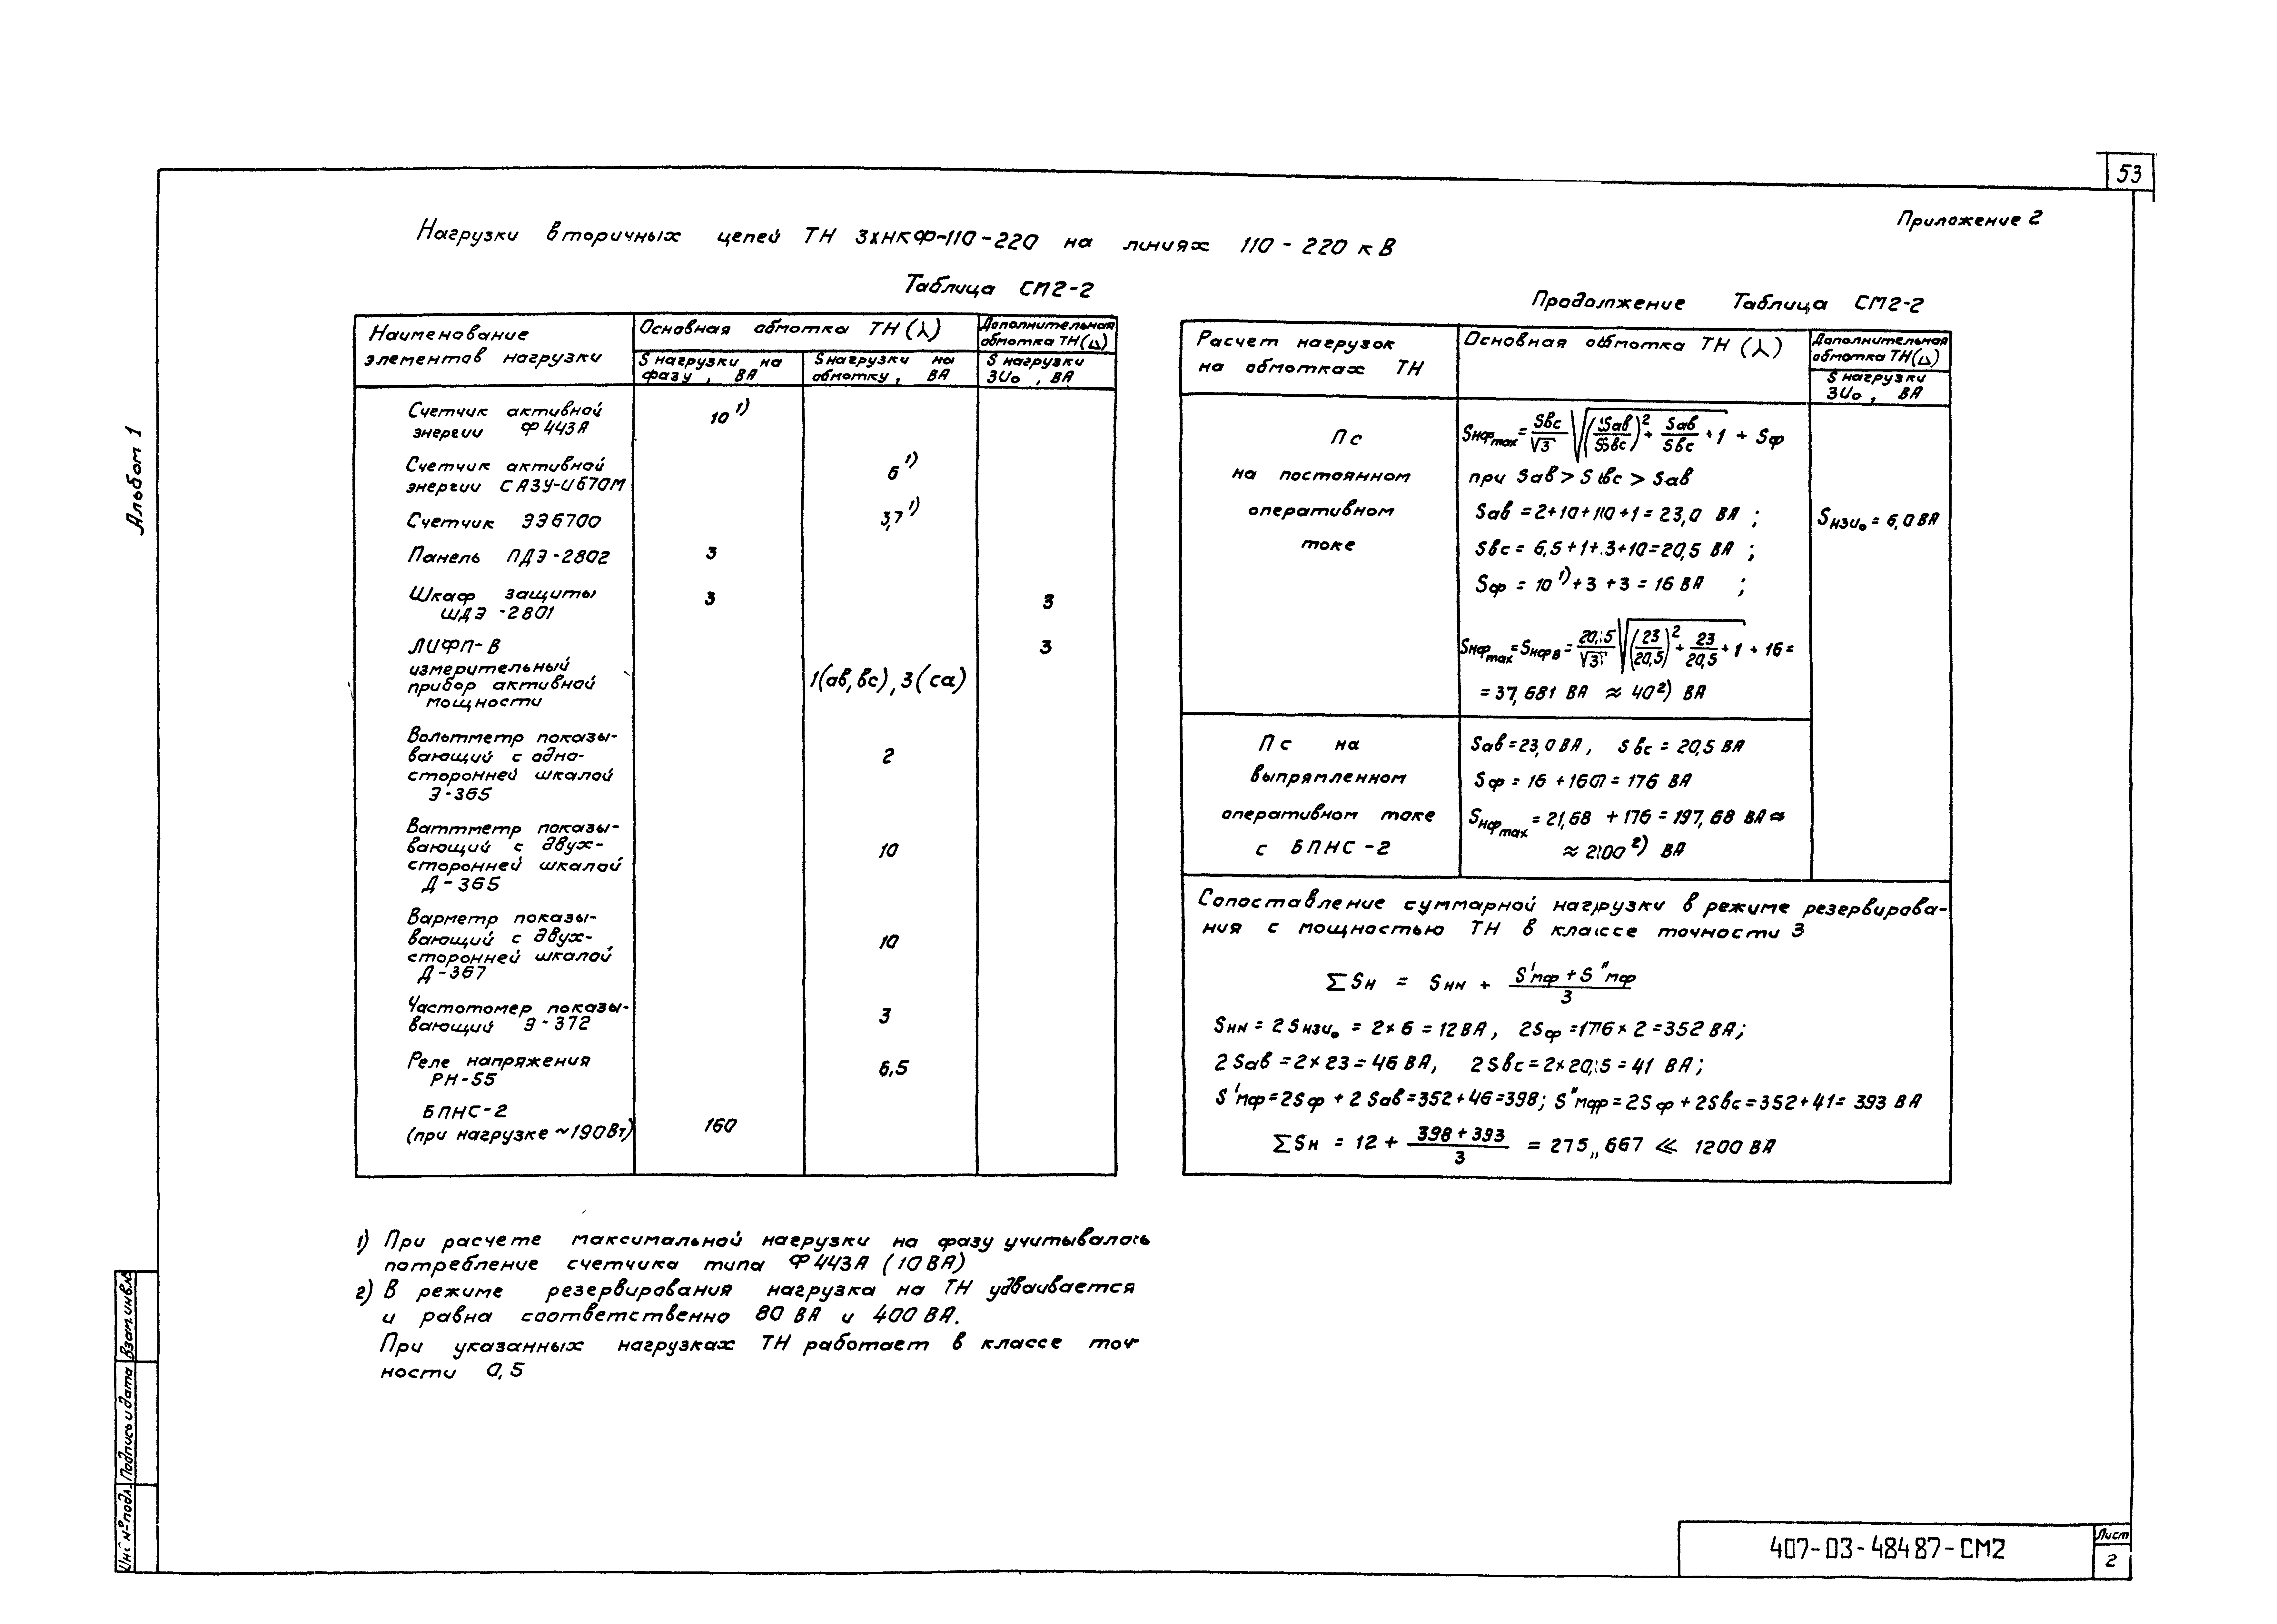 53
Приложение 2
Альбом 1
Нагрузки вторичных цепей ТН 3хНКФ-110-220 на линиях 110-220 кВ
Таблица СМ2-2
Наименование элементов нагрузки
Основная обмотка ТН (⅄)
Дополнительная обмотка ТН(△)
S нагрузки на фазу, ВА
S нагрузки на обмотку, ВА
S нагрузки 3U₀, ВА
Счетчик активной
энергии Ф443А 10¹⁾
Счетчик активной
энергии САЗУ-И670М 6¹⁾
Счетчик ЭЭ6700 3,7¹⁾
Панель ПДЭ-2802 3
Шкаф защиты
ШДЭ-2801 3 3
ЛИФП-В 3
измерительный
прибор активной 1(ав,вс), 3(са)
мощности
Вольтметр показы-
вающий с одно- 2
сторонней шкалой
Э-365
Ваттметр показы-
вающий с двух- 10
сторонней шкалой
Д-365
Варметр показы-
вающий с двух- 10
сторонней шкалой
Д-367
Частотомер показы-
вающий Э-372 3
Реле напряжения 6,5
РН-55
БПНС-2
(при нагрузке ~190Вт) 160
Продолжение Таблица СМ2-2
Расчет нагрузок на обмотках ТН
Основная обмотка ТН (⅄)
Дополнительная обмотка ТН(△)
S нагрузки 3U₀, ВА
ПС
на постоянном
оперативном
токе
Sнфmax = Sвс/√3 √((Sав/Sвс)² + Sав/Sвс + 1) + Sф
при Sав > Sвс > Sав
Sав = 2+10+10+1 = 23,0 ВА ;
Sвс = 6,5+1+3+10=20,5 ВА ;
Sф = 10¹⁾+3+3 = 16 ВА ;
Sнфmax = Sнфв = 20,5/√3 √((23/20,5)² + 23/20,5 + 1) + 16 =
= 37,681 ВА ≈ 40²⁾ ВА
Sн3U₀ = 6,0 ВА
ПС на
выпрямленном
оперативном токе
с БПНС-2
Sав=23,0 ВА, Sвс = 20,5 ВА
Sф = 16 + 160 = 176 ВА
Sнфmax = 21,68 + 176 = 197,68 ВА ≈
≈ 200²⁾ ВА
Сопоставление суммарной нагрузки в режиме резервирова-
ния с мощностью ТН в классе точности 3
∑Sн = Sнн + (S'мф + S"мф)/3
Sнн = 2Sн3U₀ = 2×6 = 12ВА, 2Sф =176×2=352 ВА;
2Sав = 2×23 = 46 ВА, 2Sвс=2×20,5 = 41 ВА;
S'мф=2Sф + 2Sав=352+46=398; S"мф=2Sф+2Sвс=352+41= 393 ВА
∑Sн = 12 + (398+393)/3 = 275,667 ≪ 1200 ВА
1) При расчете максимальной нагрузки на фазу учитывалось
потребление счетчика типа Ф443А (10ВА)
2) В режиме резервирования нагрузка на ТН удваивается
и равна соответственно 80 ВА и 400 ВА.
При указанных нагрузках ТН работает в классе точ-
ности 0,5
Взам.инв.№
Подпись и дата
Инв №подл.
407-03-484 87-СМ2
Лист
2